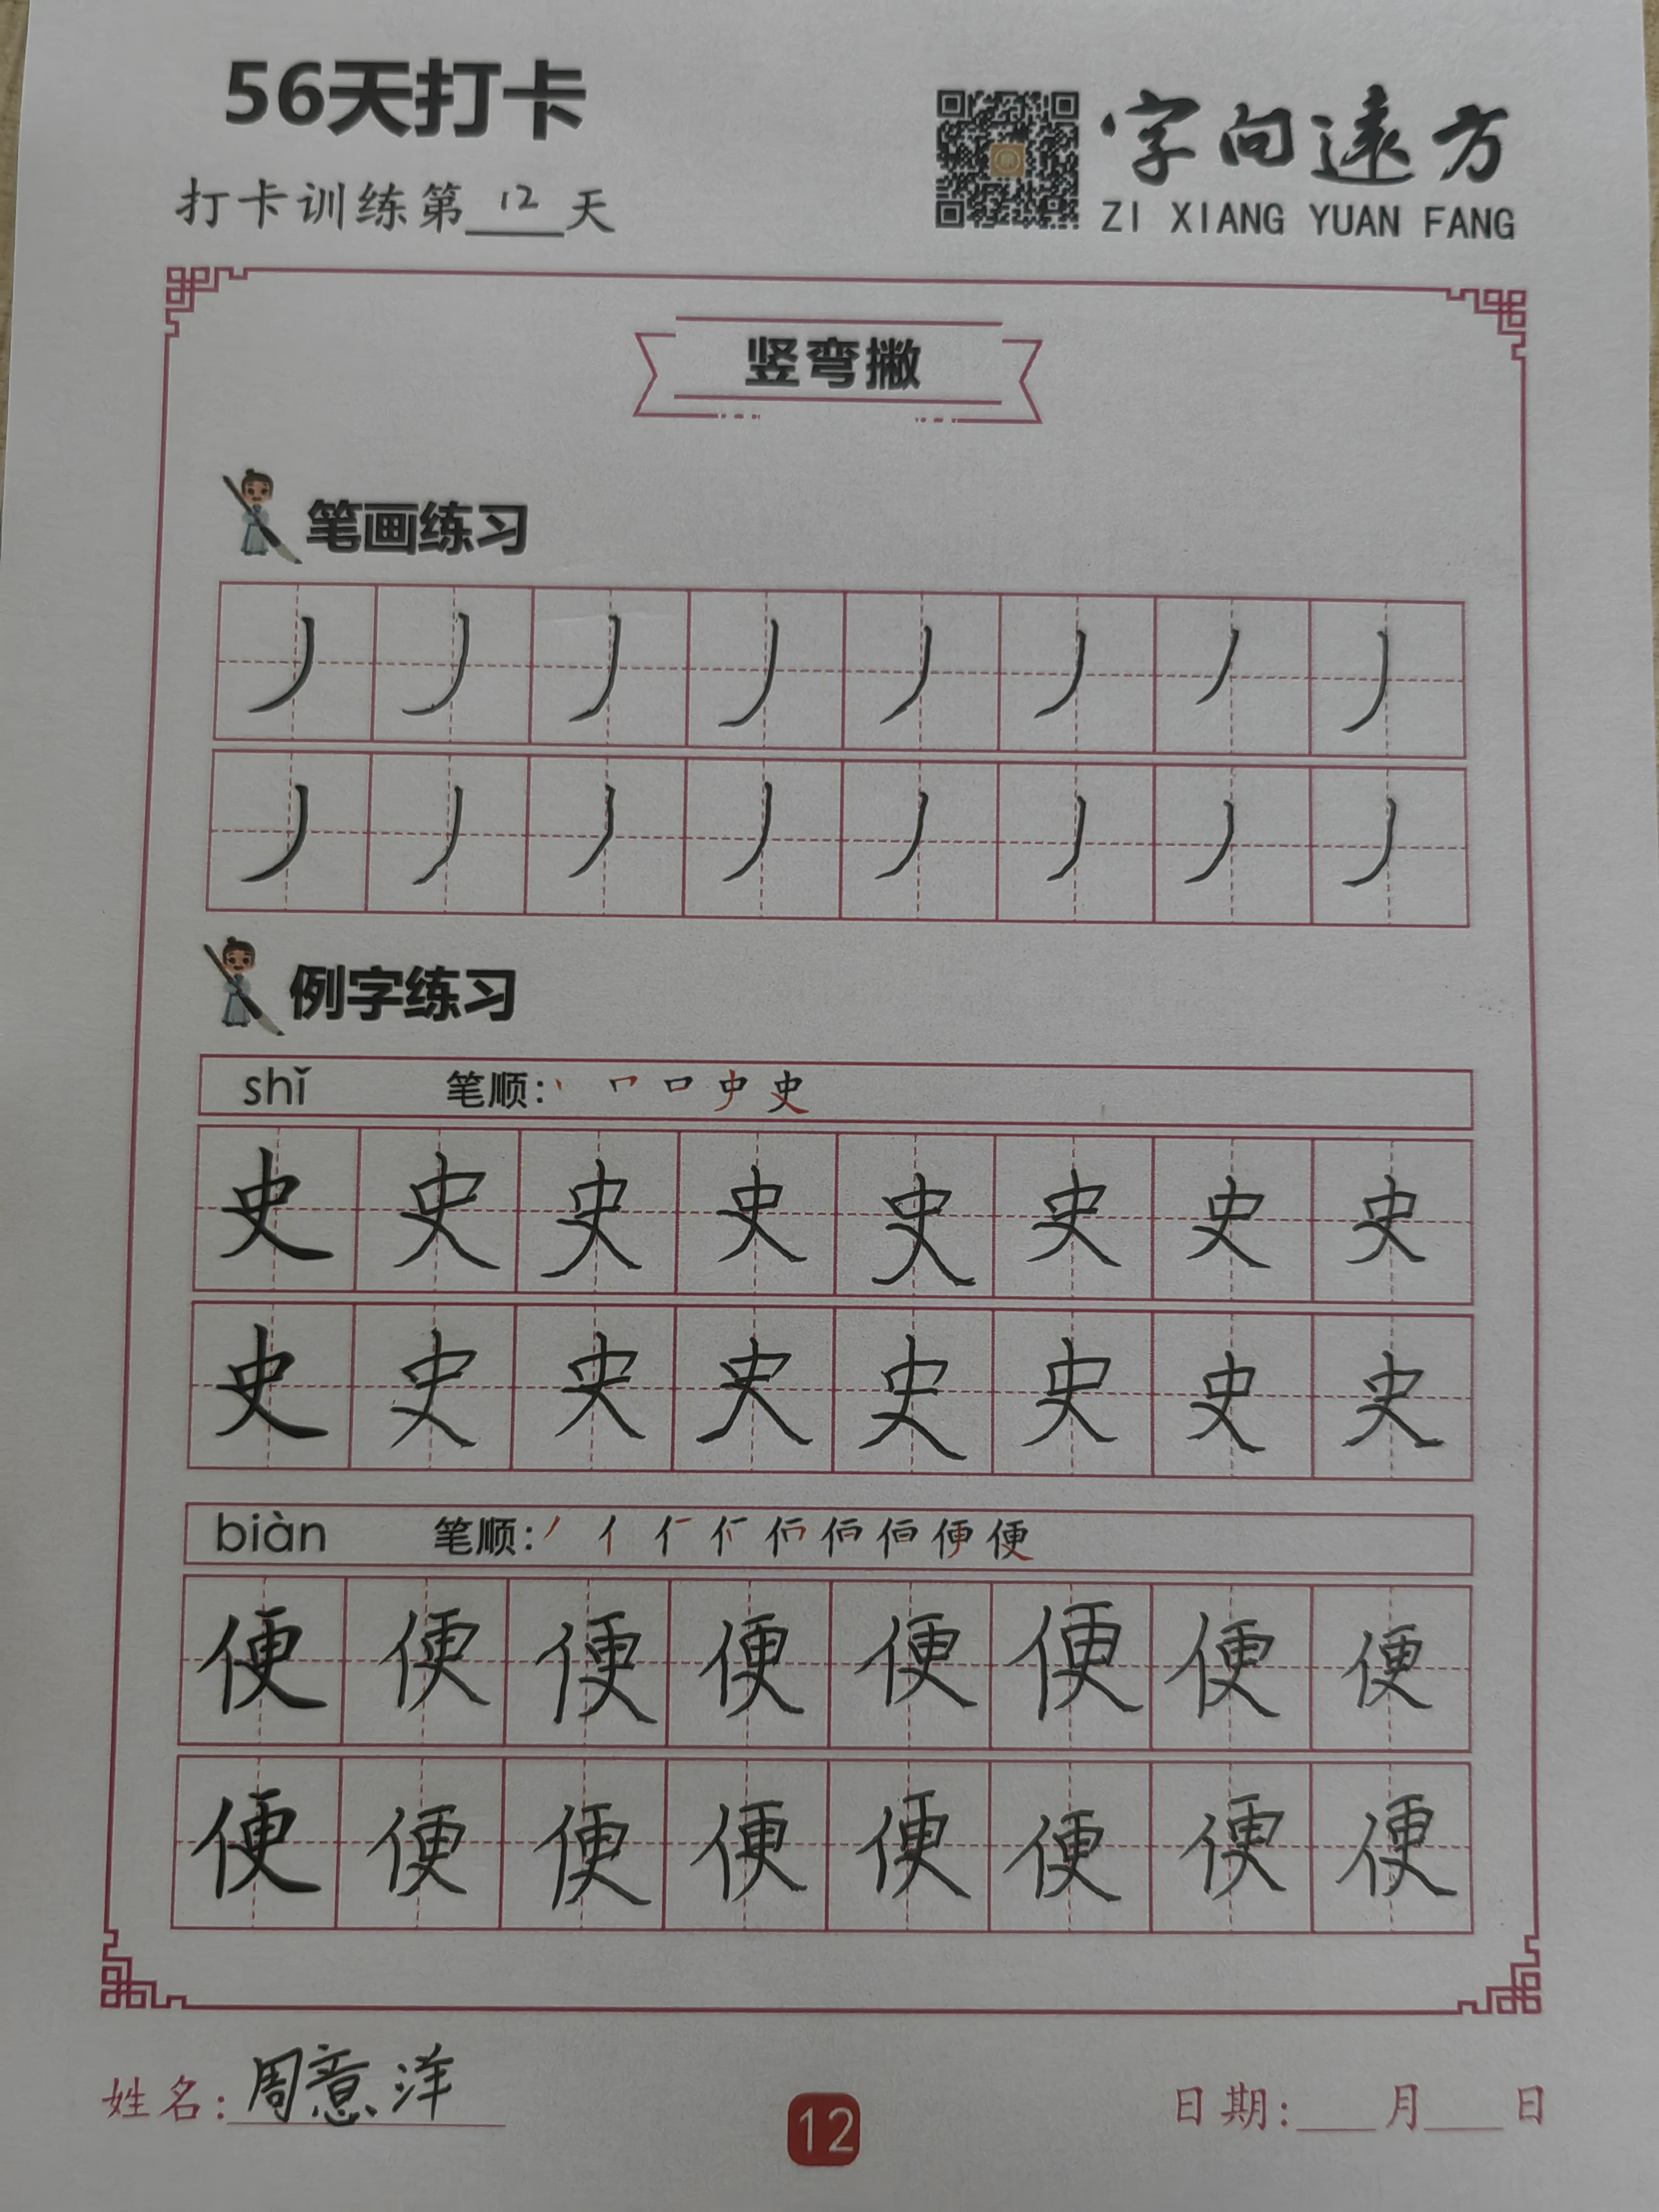 56天打卡
字向遠方
打卡训练第12天
ZI XIANG YUAN FANG
竖弯撇
笔画练习
丿 丿 丿 丿 丿 丿 丿 丿
丿 丿 丿 丿 丿 丿 丿 丿
例字练习
shǐ 笔顺: 丨 𠃍 口 史 史
史 史 史 史 史 史 史 史
史 史 史 史 史 史 史 史
biàn 笔顺: 丿 亻 便
便 便 便 便 便 便 便 便
便 便 便 便 便 便 便 便
姓名: 周意洋
12
日期: ___月___日